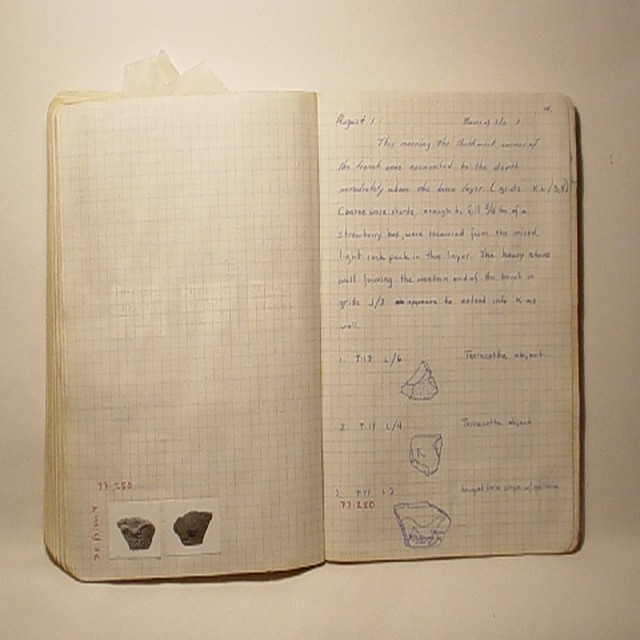 77.250
August 1
This morning the Northwest corner of
the trench was excavated to the depth
immediately above the base layer. (grids
Coarse ware sherds, enough to fill 3/4 of a
strawberry box, were recovered from the mixed,
light rock pack in this layer. The heavy stone
wall forming the western end of the trench in
grids J/2 appears to extend into K as
well.
1. T.17 L/6 Terracotta object
2. T.17 L/4 Terracotta object
3. T.17
77.250